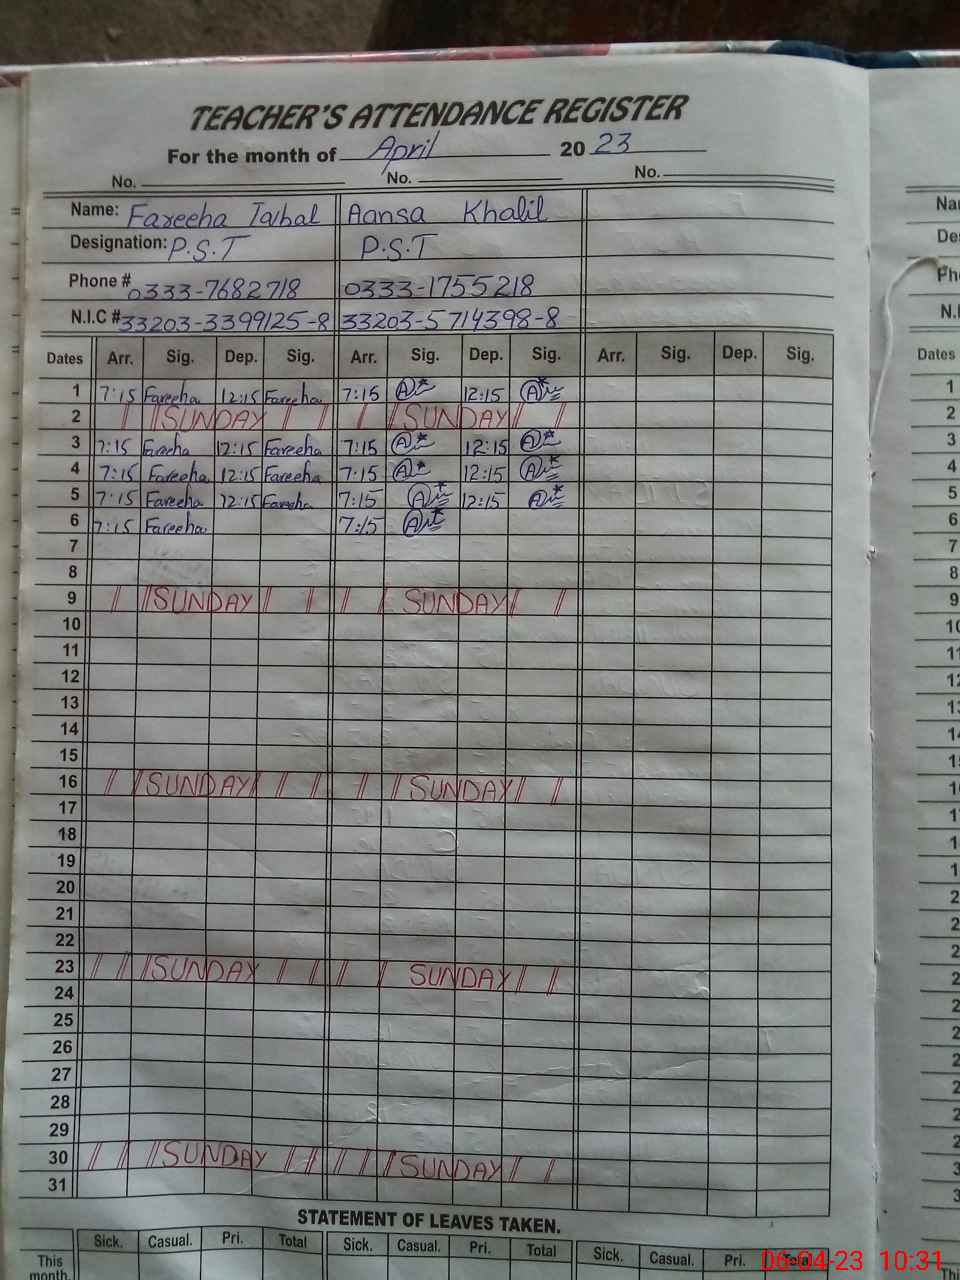 TEACHER'S ATTENDANCE REGISTER
For the month of April 2023
No. No. No.
Name: Fareeha Iqbal Aansa Khalil
Designation: P.S.T P.S.T
Phone # 0333-7682718 0333-1755218
N.I.C # 33203-3399125-8 33203-5714398-8
Dates Arr. Sig. Dep. Sig. Arr. Sig. Dep. Sig. Arr. Sig. Dep. Sig.
1 7:15 Fareeha 12:15 Fareeha 7:15 12:15
2 SUNDAY SUNDAY
3 7:15 Fareeha 12:15 Fareeha 7:15 12:15
4 7:15 Fareeha 12:15 Fareeha 7:15 12:15
5 7:15 Fareeha 12:15 Fareeha 7:15 12:15
6 7:15 Fareeha 7:15
7
8
9 SUNDAY SUNDAY
10
11
12
13
14
15
16 SUNDAY SUNDAY
17
18
19
20
21
22
23 SUNDAY SUNDAY
24
25
26
27
28
29
30 SUNDAY SUNDAY
31
STATEMENT OF LEAVES TAKEN.
Sick. Casual. Pri. Total Sick. Casual. Pri. Total Sick. Casual. Pri. Total
This
month.
06-04-23 10:31